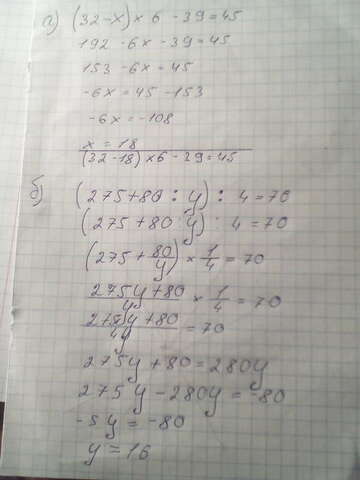 а) (32-x)×6 -39=45
192 -6x -39=45
153 -6x =45
-6x =45 -153
-6x =-108
x =18
(32-18)×6 -39=45
б) (275+80 : y) : 4=70
(275+80 : y) : 4=70
(275+80/y)×1/4=70
275y+80/y ×1/4=70
275y+80/4y=70
275y+80=280y
275y-280y=-80
-5y =-80
y=16